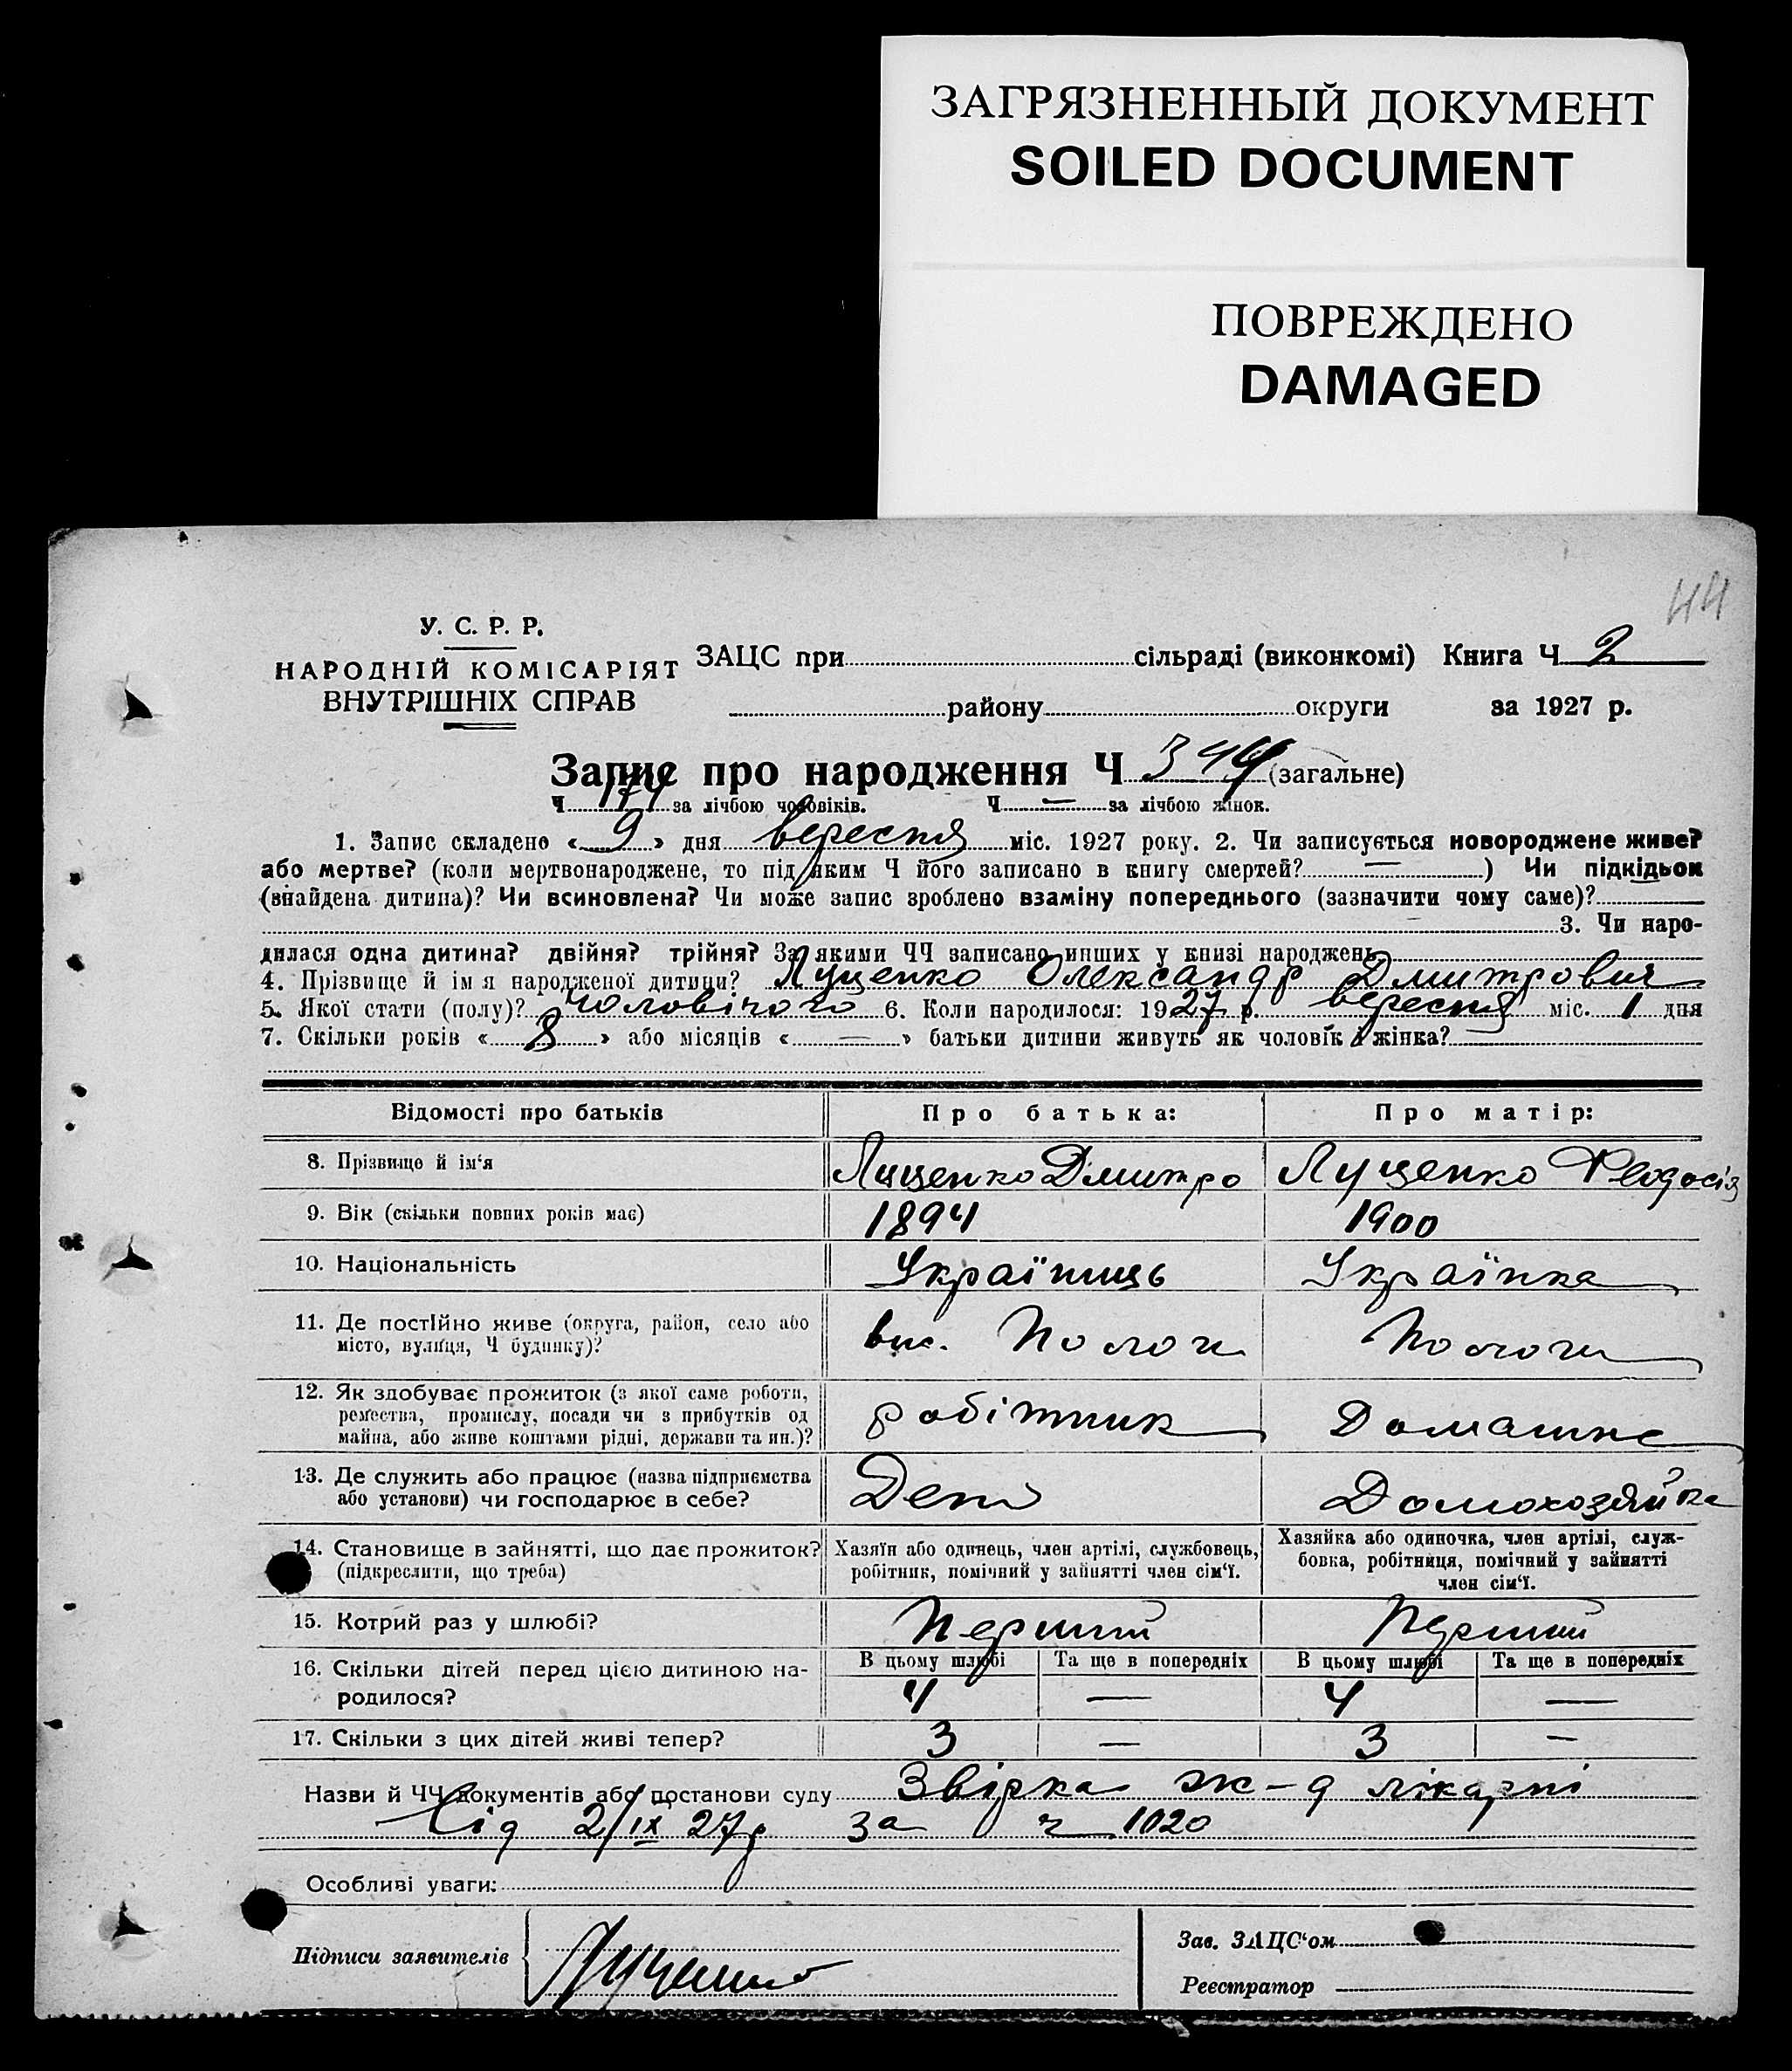 ЗАГРЯЗНЕННЫЙ ДОКУМЕНТ
SOILED DOCUMENT
ПОВРЕЖДЕНО
DAMAGED
44
У. С. Р. Р.
НАРОДНІЙ КОМІСАРІЯТ
ВНУТРІШНІХ СПРАВ
ЗАЦС при сільраді (виконкомі) Книга Ч 2
району округи за 1927 р.
Запис про народження Ч 344 (загальне)
Ч 174 за лічбою чоловіків. Ч — за лічбою жінок.
1. Запис складено « 9 » дня вересня міс. 1927 року. 2. Чи записується новороджене живе?
або мертве? (коли мертвонароджене, то під яким Ч його записано в книгу смертей? — ) Чи підкідьок
(знайдена дитина)? Чи всиновлена? Чи може запис зроблено взаміну попереднього (зазначити чому саме)?
3. Чи наро-
дилася одна дитина? двійня? трійня? За якими ЧЧ записано инших у книзі народжень
4. Прізвище й ім я народженої дитини? Луценко Олександр Дмитрович
5. Якої стати (полу)? чоловічого 6. Коли народилося: 1927 р. вересня міс. 1 дня
7. Скільки років « 8 » або місяців « — » батьки дитини живуть як чоловік і жінка?
Відомості про батьків Про батька: Про матір:
8. Прізвище й ім'я Луценко Дмитро Луценко Феодосія
9. Вік (скільки повних років має) 1894 1900
10. Національність Українець Українка
11. Де постійно живе (округа, район, село або
місто, вулиця, Ч будинку)? Пологи Пологи
12. Як здобуває прожиток (з якої саме роботи,
ремества, промислу, посади чи з прибутків од
майна, або живе коштами рідні, держави та ин.)? робітник Домашнє
13. Де служить або працює (назва підприємства
або установи) чи господарює в себе? Депо Домохозяйка
14. Становище в зайнятті, що дає прожиток?
(підкреслити, що треба)
Хазяїн або одинець, член артілі, службовець,
робітник, помічний у зайнятті член сім'ї.
Хазяйка або одиночка, член артілі, служ-
бовка, робітниця, помічний у зайнятті
член сім'ї.
15. Котрий раз у шлюбі? Перший Перший
16. Скільки дітей перед цією дитиною на-
родилося?
В цьому шлюбі Та ще в попередніх В цьому шлюбі Та ще в попередніх
4 — 4 —
17. Скільки з цих дітей живі тепер? 3 — 3 —
Назви й ЧЧ документів або постанови суду Звірка ж-д лікарні
від 2/IX 27р за ч 1020
Особливі уваги:
Підписи заявителів Луценко
Зав. ЗАЦС'ом
Реєстратор